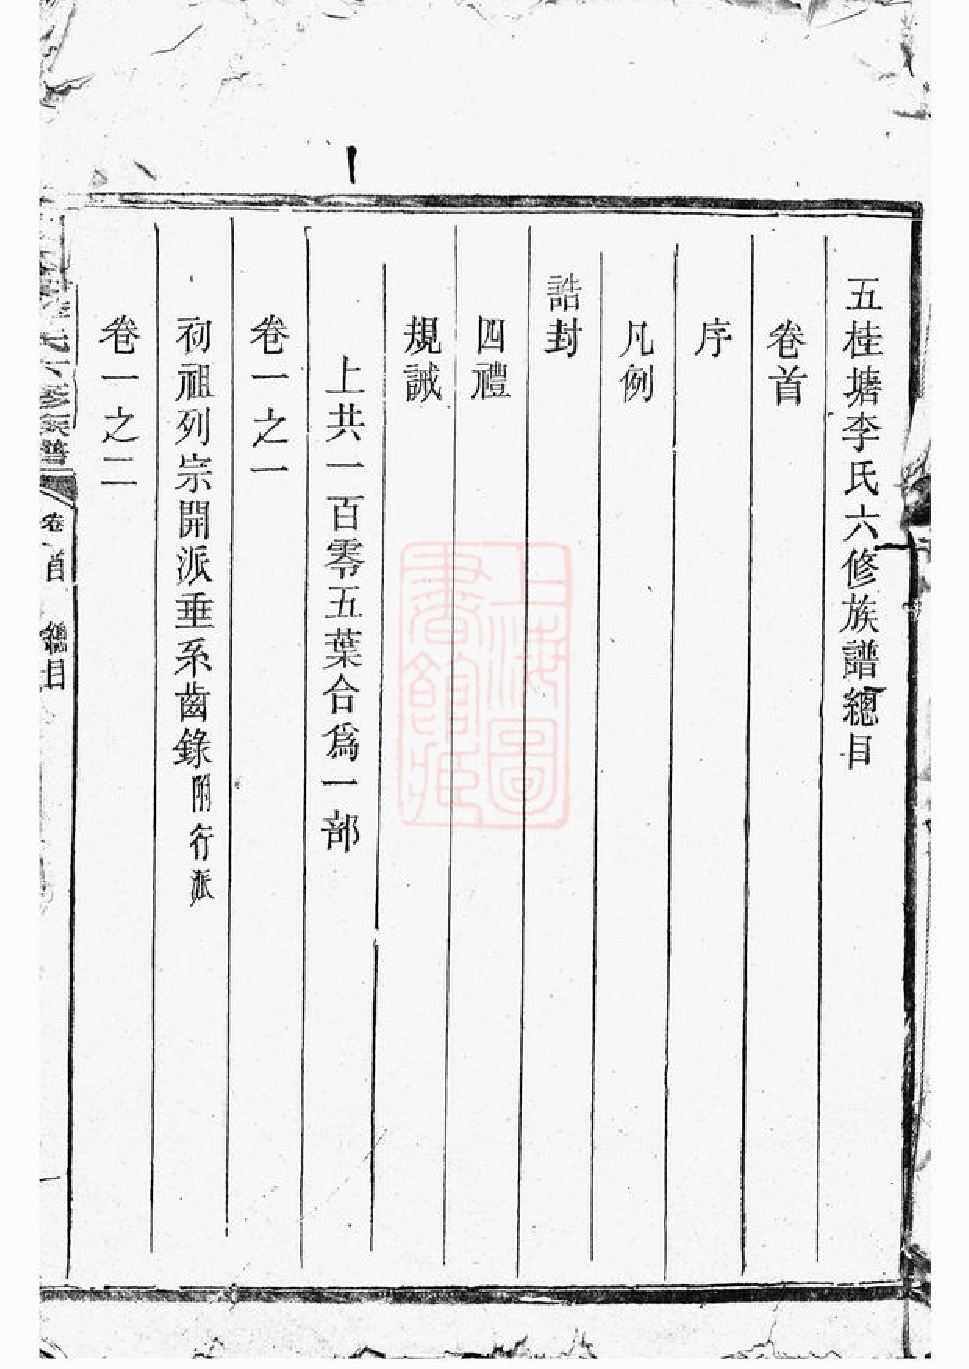 五桂塘李氏六修族譜總目
卷首
序
凡例
誥封
四禮
規誡
上共一百零五葉合爲一部
卷一之一
初祖列宗開派垂系齒錄附行派
卷一之二
李氏六修族譜
卷首
總目
一
上海圖書館藏